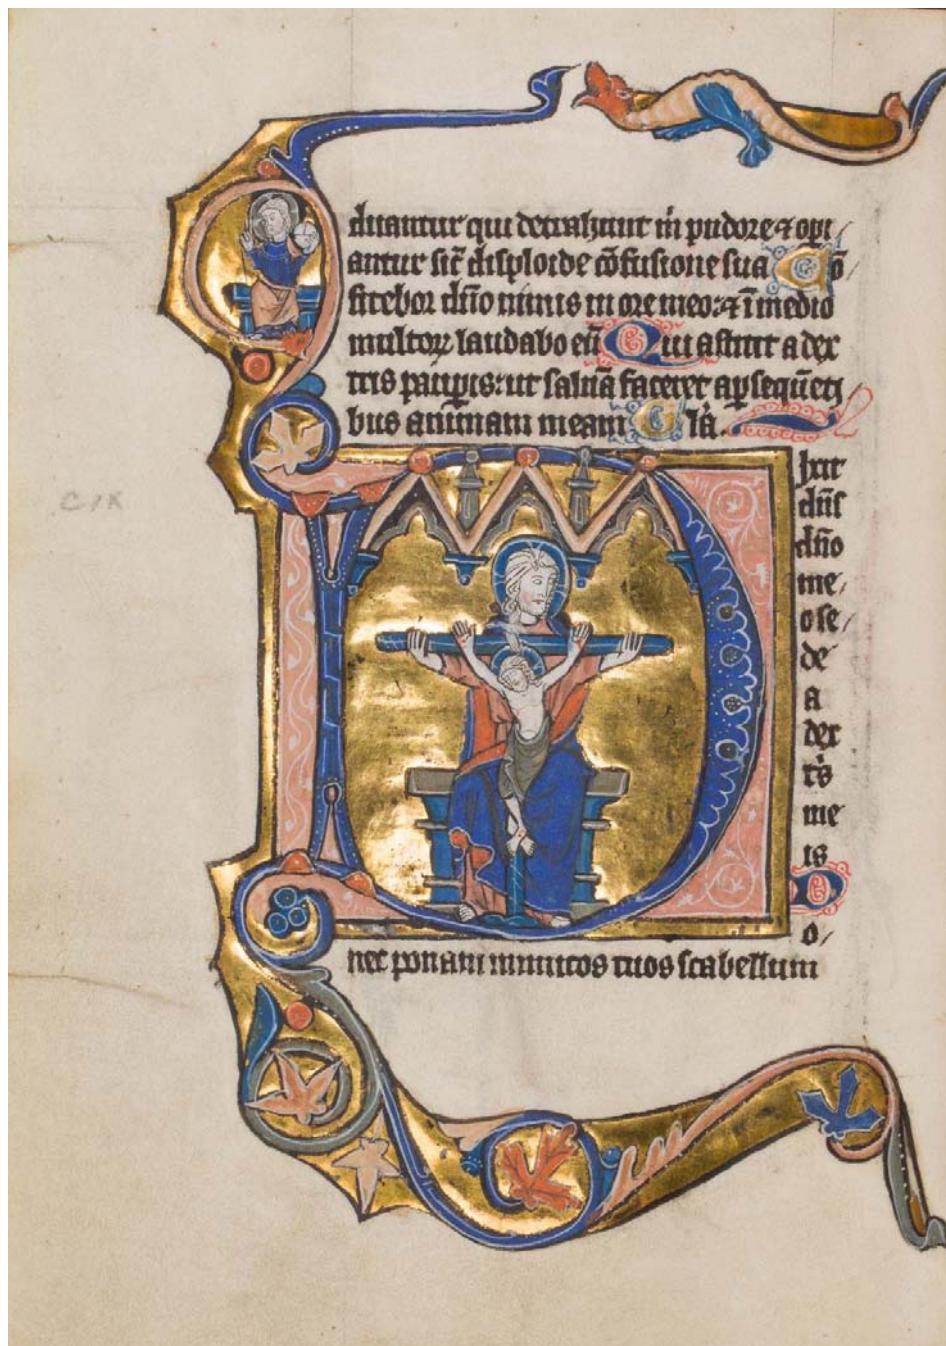 duantur qui detrahunt m̄ pudore ⁊ opi
antur sic̄ disploide cōfusione sua Cō
fitebor dn̄o nimis in ore meo: ⁊ ī medio
multoꝝ laudabo eū Qui astitit a dex
tris paup̱is: ut saluā faceret a p̱sequēti
bus animam meam Gl̄a.
Dixit
dn̄s
dn̄o
me
o se
de
a
dex
tr̄s
me
is
D
o
nec ponam inimicos tuos scabellum
CIX